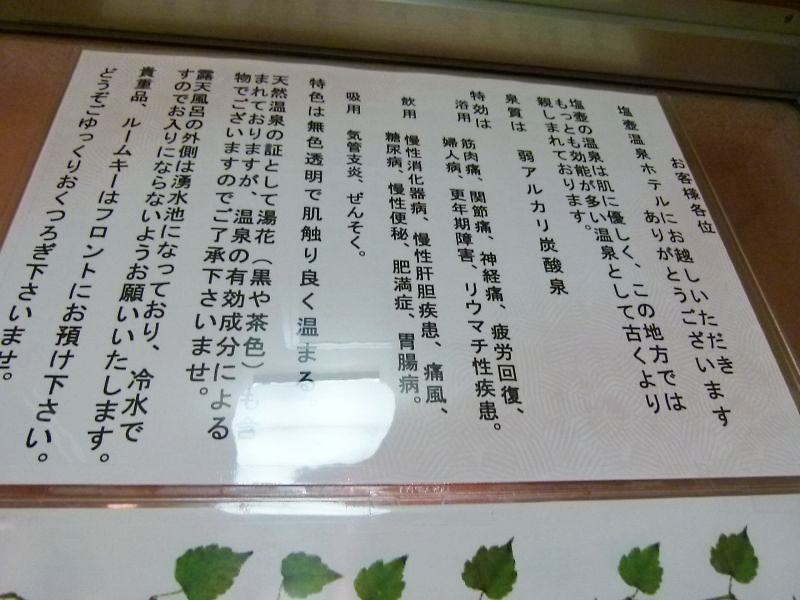 お客様各位
塩壺温泉ホテルにお越しいただき
ありがとうございます
塩壺の温泉は肌に優しく、この地方では
もっとも効能が多い温泉として古くより
親しまれております。
泉質は 弱アルカリ炭酸泉
特効は
浴用 筋肉痛、関節痛、神経痛、疲労回復、
婦人病、更年期障害、リウマチ性疾患。
飲用 慢性消化器病、慢性肝胆疾患、痛風、
糖尿病、慢性便秘、肥満症、胃腸病。
吸用 気管支炎、ぜんそく。
特色は無色透明で肌触り良く温まる
天然温泉の証として湯花（黒や茶色）も含
まれておりますが、温泉の有効成分による
物でございますのでご了承下さいませ。
露天風呂の外側は湧水池になっており、冷水で
すのでお入りにならないようお願いいたします。
貴重品、ルームキーはフロントにお預け下さい。
どうぞごゆっくりおくつろぎ下さいませ。